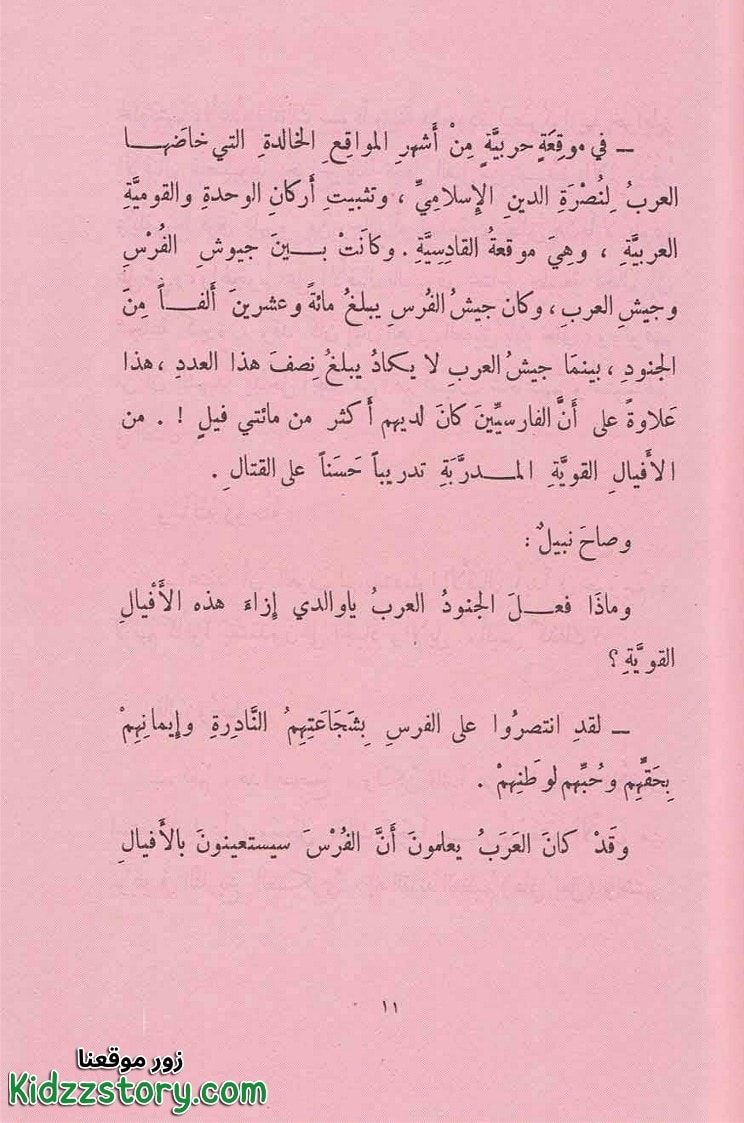 ــ في موقِعَةٍ حربيَّةٍ مِنْ أَشهرِ المواقعِ الخالدةِ التي خاضَهــا
العربُ لِنُصْرَةِ الدينِ الإِسلاميِّ ، وتثبيتِ أَركانِ الوحدةِ والقوميَّةِ
العربيَّةِ ، وهيَ موقعةُ القادِسِيَّةِ . وكانَتْ بــينَ جيوشِ الفُرْسِ
وجيشِ العربِ ، وكان جيشُ الفُرسِ يبلغُ مائةً وعشرينَ أَلفــاً مِنَ
الجنودِ ، بينمَا جيشُ العربِ لا يكادُ يبلغُ نِصفَ هذا العددِ ، هذا
عَلاوةً على أَنَّ الفارسيِّينَ كانَ لديهم أَكثر من مائتي فيلٍ ! . من
الأَفيالِ القويَّةِ المــدرَّبَةِ تدريباً حَسَناً على القتالِ .
وصاحَ نبيلٌ :
وماذَا فعــلَ الجنودُ العربُ ياوالدي إِزاءَ هذه الأَفيالِ
القويَّةِ ؟
ــ لقدِ انتصرُوا على الفرسِ بِشَجَاعَتِهِمُ النَّادِرةِ وإِيمانِهِمْ
بِحَقِّهِم وحُبِّهِم لوَطَنِهِمْ .
وقَدْ كانَ العَرَبُ يعلمونَ أَنَّ الفُرْسَ سيستعينونَ بالأَفيالِ
١١
زور موقعنا
Kidzzstory.com